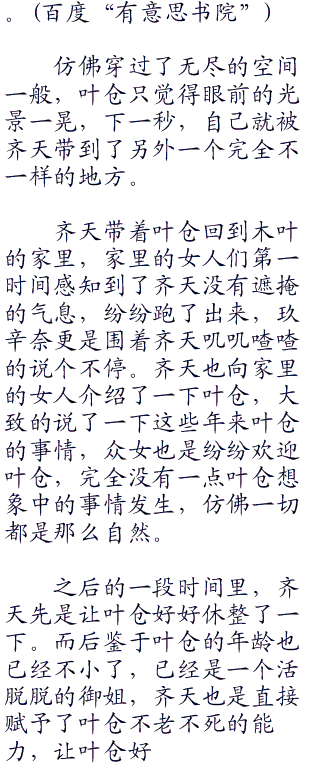 。(百度“有意思书院”)
仿佛穿过了无尽的空间
一般，叶仓只觉得眼前的光
景一晃，下一秒，自己就被
齐天带到了另外一个完全不
一样的地方。
齐天带着叶仓回到木叶
的家里，家里的女人们第一
时间感知到了齐天没有遮掩
的气息，纷纷跑了出来，玖
辛奈更是围着齐天叽叽喳喳
的说个不停。齐天也向家里
的女人介绍了一下叶仓，大
致的说了一下这些年来叶仓
的事情，众女也是纷纷欢迎
叶仓，完全没有一点叶仓想
象中的事情发生，仿佛一切
都是那么自然。
之后的一段时间里，齐
天先是让叶仓好好休整了一
下。而后鉴于叶仓的年龄也
已经不小了，已经是一个活
脱脱的御姐，齐天也是直接
赋予了叶仓不老不死的能
力，让叶仓好